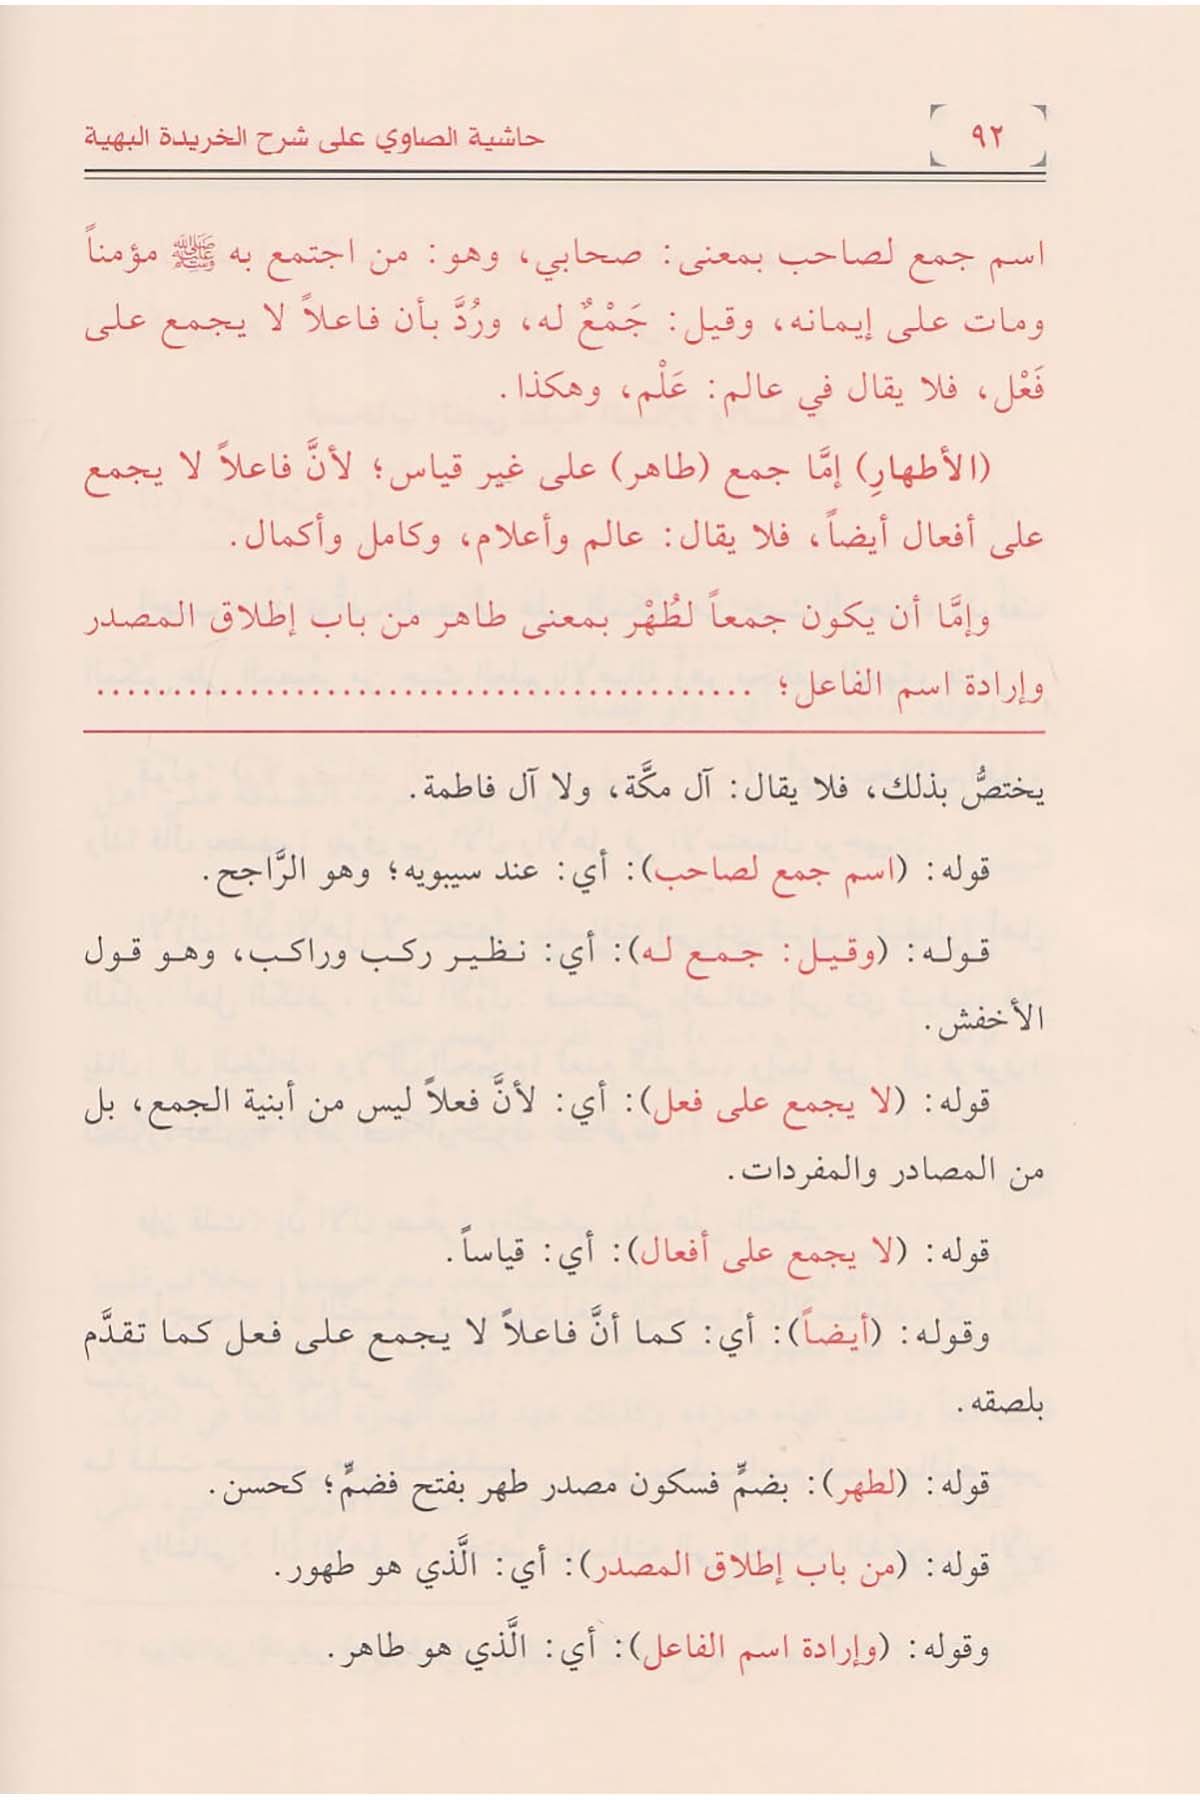 ٩٢
حاشية الصاوي على شرح الخريدة البهية
اسم جمع لصاحب بمعنى: صحابي، وهو: من اجتمع به ﷺ مؤمناً
ومات على إيمانه، وقيل: جَمْعٌ له، ورُدَّ بأن فاعلاً لا يجمع على
فَعْل، فلا يقال في عالم: عَلْم، وهكذا.
(الأطهارِ) إمَّا جمع (طاهر) على غير قياس؛ لأنَّ فاعلاً لا يجمع
على أفعال أيضاً، فلا يقال: عالم وأعلام، وكامل وأكمال.
وإمَّا أن يكون جمعاً لطُهْر بمعنى طاهر من باب إطلاق المصدر
وإرادة اسم الفاعل؛ ............................................
يختصُّ بذلك، فلا يقال: آل مكَّة، ولا آل فاطمة.
قوله: (اسم جمع لصاحب): أي: عند سيبويه؛ وهو الرَّاجح.
قوله: (وقيل: جمع له): أي: نظير ركب وراكب، وهو قول
الأخفش.
قوله: (لا يجمع على فعل): أي: لأنَّ فعلاً ليس من أبنية الجمع، بل
من المصادر والمفردات.
قوله: (لا يجمع على أفعال): أي: قياساً.
وقوله: (أيضاً): أي: كما أنَّ فاعلاً لا يجمع على فعل كما تقدَّم
بلصقه.
قوله: (لطهر): بضمٍّ فسكون مصدر طهر بفتح فضمٍّ؛ كحسن.
قوله: (من باب إطلاق المصدر): أي: الَّذي هو طهور.
وقوله: (وإرادة اسم الفاعل): أي: الَّذي هو طاهر.